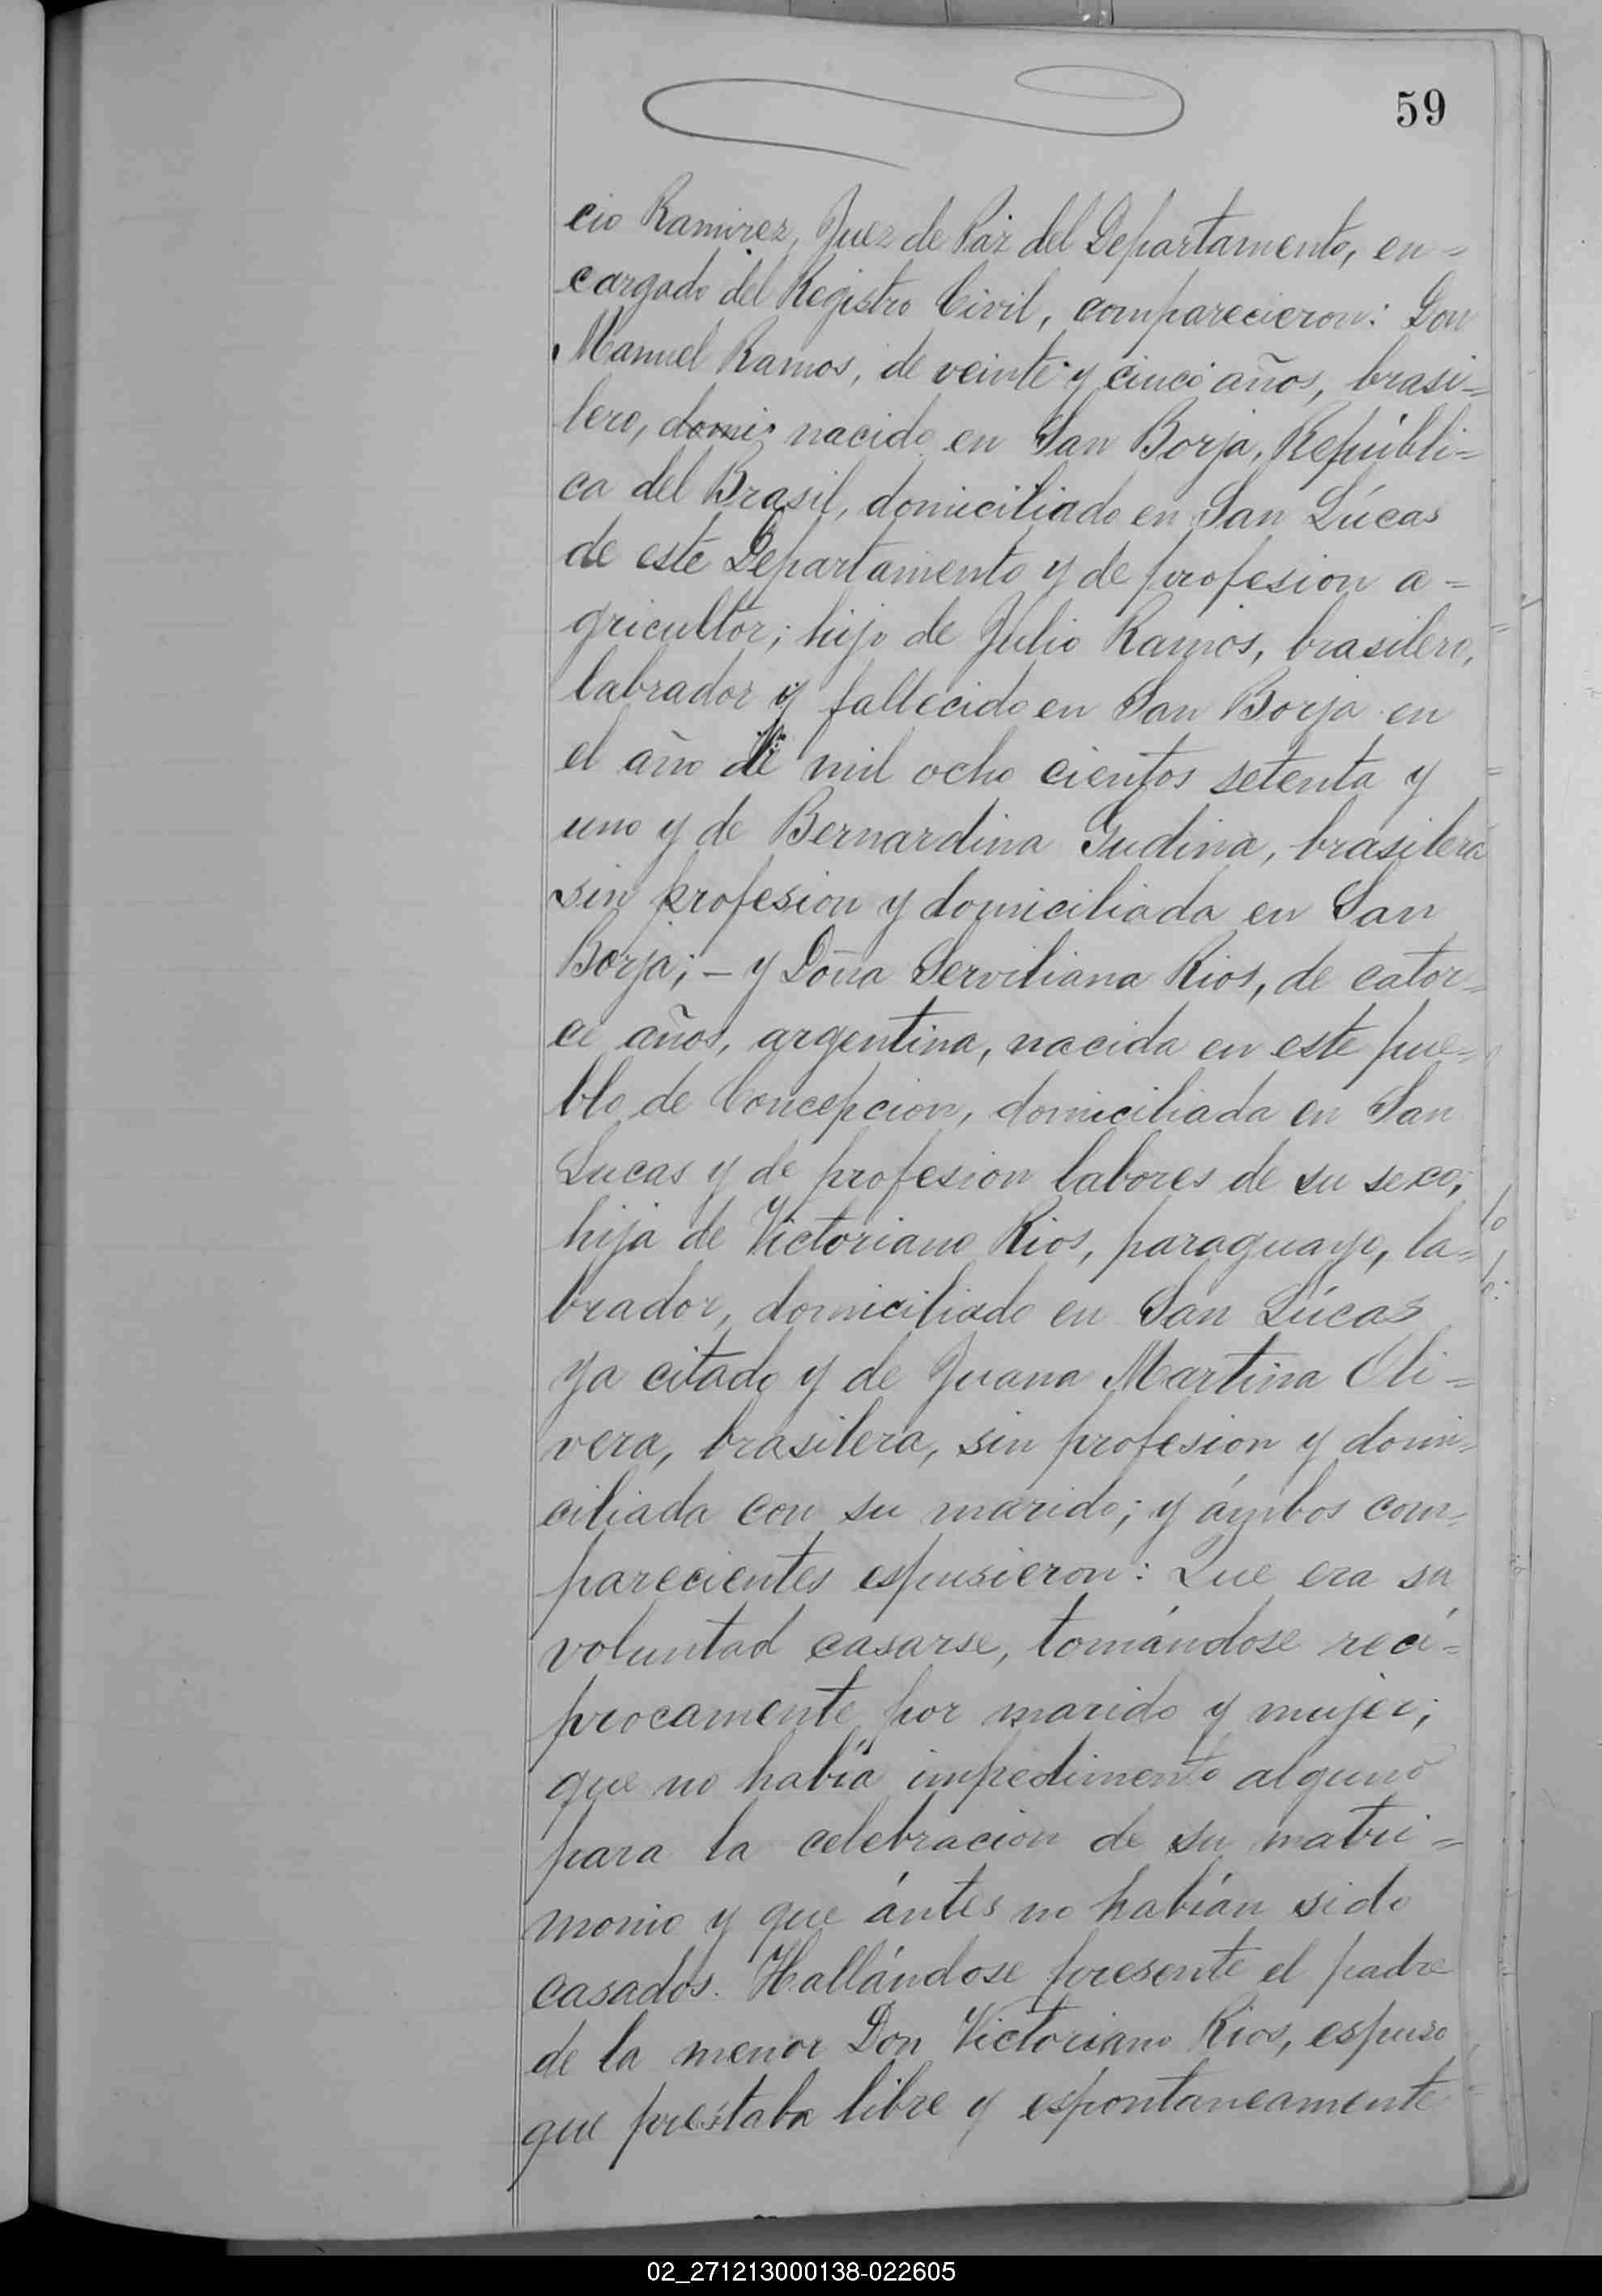 59
cio Ramirez, Juez de Páz del Departamento, en=
cargado del Registro Civil, comparecieron: Don
Manuel Ramos, de veinte y cinco años, brasi=
lero, domi nacido en San Borja, Repúbli=
ca del Brasil, domiciliado en San Lúcas
de este Departamento y de profesion a=
gricultor; hijo de Julio Ramos, brasilero,
labrador y fallecido en San Borja en
el año de mil ocho cientos setenta y
uno y de Bernardina Gudina, brasilera
sin profesion y domiciliada en San
Borja; – y Doña Serviliana Rios, de cator=
ce años, argentina, nacida en este pue=
blo de Concepcion, domiciliada en San
Lucas y de profesion labores de su sexo;
hija de Victoriano Rios, paraguayo, la=
brador, domiciliado en San Lúcas
ya citado y de Juana Martina Oli=
vera, brasilera, sin profesion y domi=
ciliada con su marido; y ámbos com=
parecientes espusieron: Que era su
voluntad casarse, tomándose recí=
procamente por marido y mujer;
que no había impedimento alguno
para la celebracion de su matri=
monio y que ántes no habían sido
casados. Hallándose presente el padre
de la menor Don Victoriano Rios, espuso
que prestaba libre y espontaneamente
02_271213000138-022605